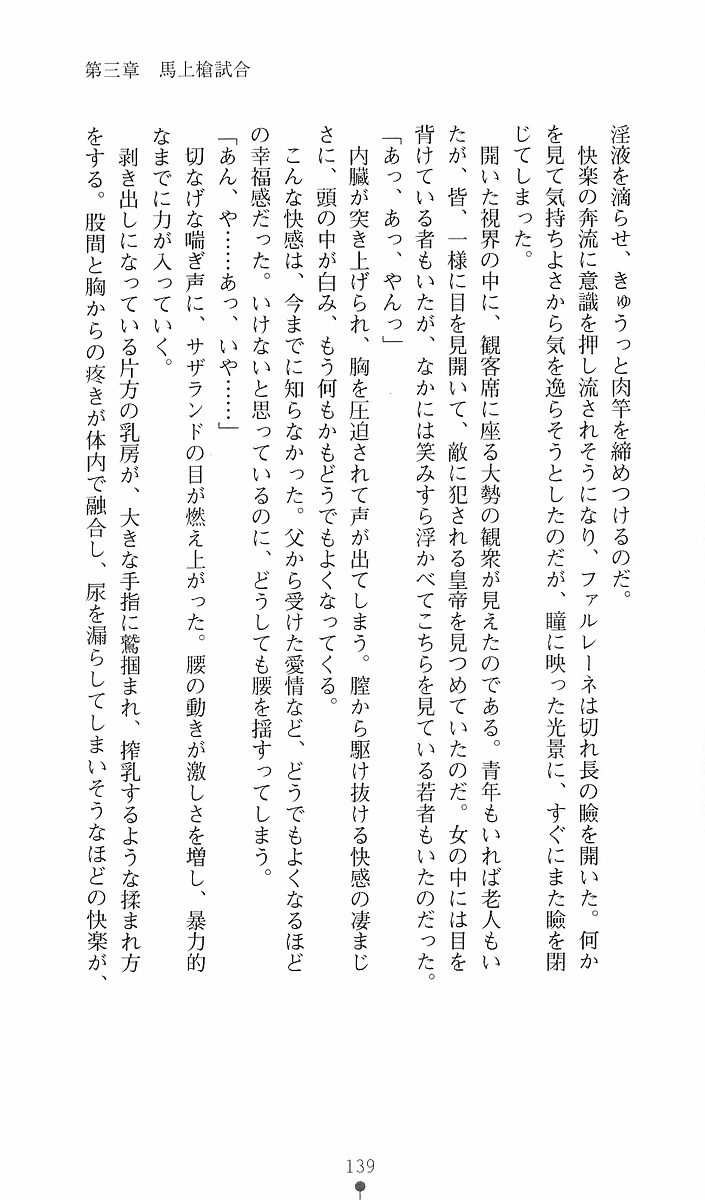 第三章　馬上槍試合
淫液を滴らせ、きゅうっと肉竿を締めつけるのだ。
　快楽の奔流に意識を押し流されそうになり、ファルレーネは切れ長の瞼を開いた。何か
を見て気持ちよさから気を逸らそうとしたのだが、瞳に映った光景に、すぐにまた瞼を閉
じてしまった。
　開いた視界の中に、観客席に座る大勢の観衆が見えたのである。青年もいれば老人もい
たが、皆、一様に目を見開いて、敵に犯される皇帝を見つめていたのだ。女の中には目を
背けている者もいたが、なかには笑みすら浮かべてこちらを見ている若者もいたのだった。
「あっ、あっ、やんっ」
　内臓が突き上げられ、胸を圧迫されて声が出てしまう。膣から駆け抜ける快感の凄まじ
さに、頭の中が白み、もう何もかもどうでもよくなってくる。
　こんな快感は、今までに知らなかった。父から受けた愛情など、どうでもよくなるほど
の幸福感だった。いけないと思っているのに、どうしても腰を揺すってしまう。
「あん、や……あっ、いや……」
　切なげな喘ぎ声に、サザランドの目が燃え上がった。腰の動きが激しさを増し、暴力的
なまでに力が入っていく。
　剥き出しになっている片方の乳房が、大きな手指に鷲掴まれ、搾乳するような揉まれ方
をする。股間と胸からの疼きが体内で融合し、尿を漏らしてしまいそうなほどの快楽が、
139